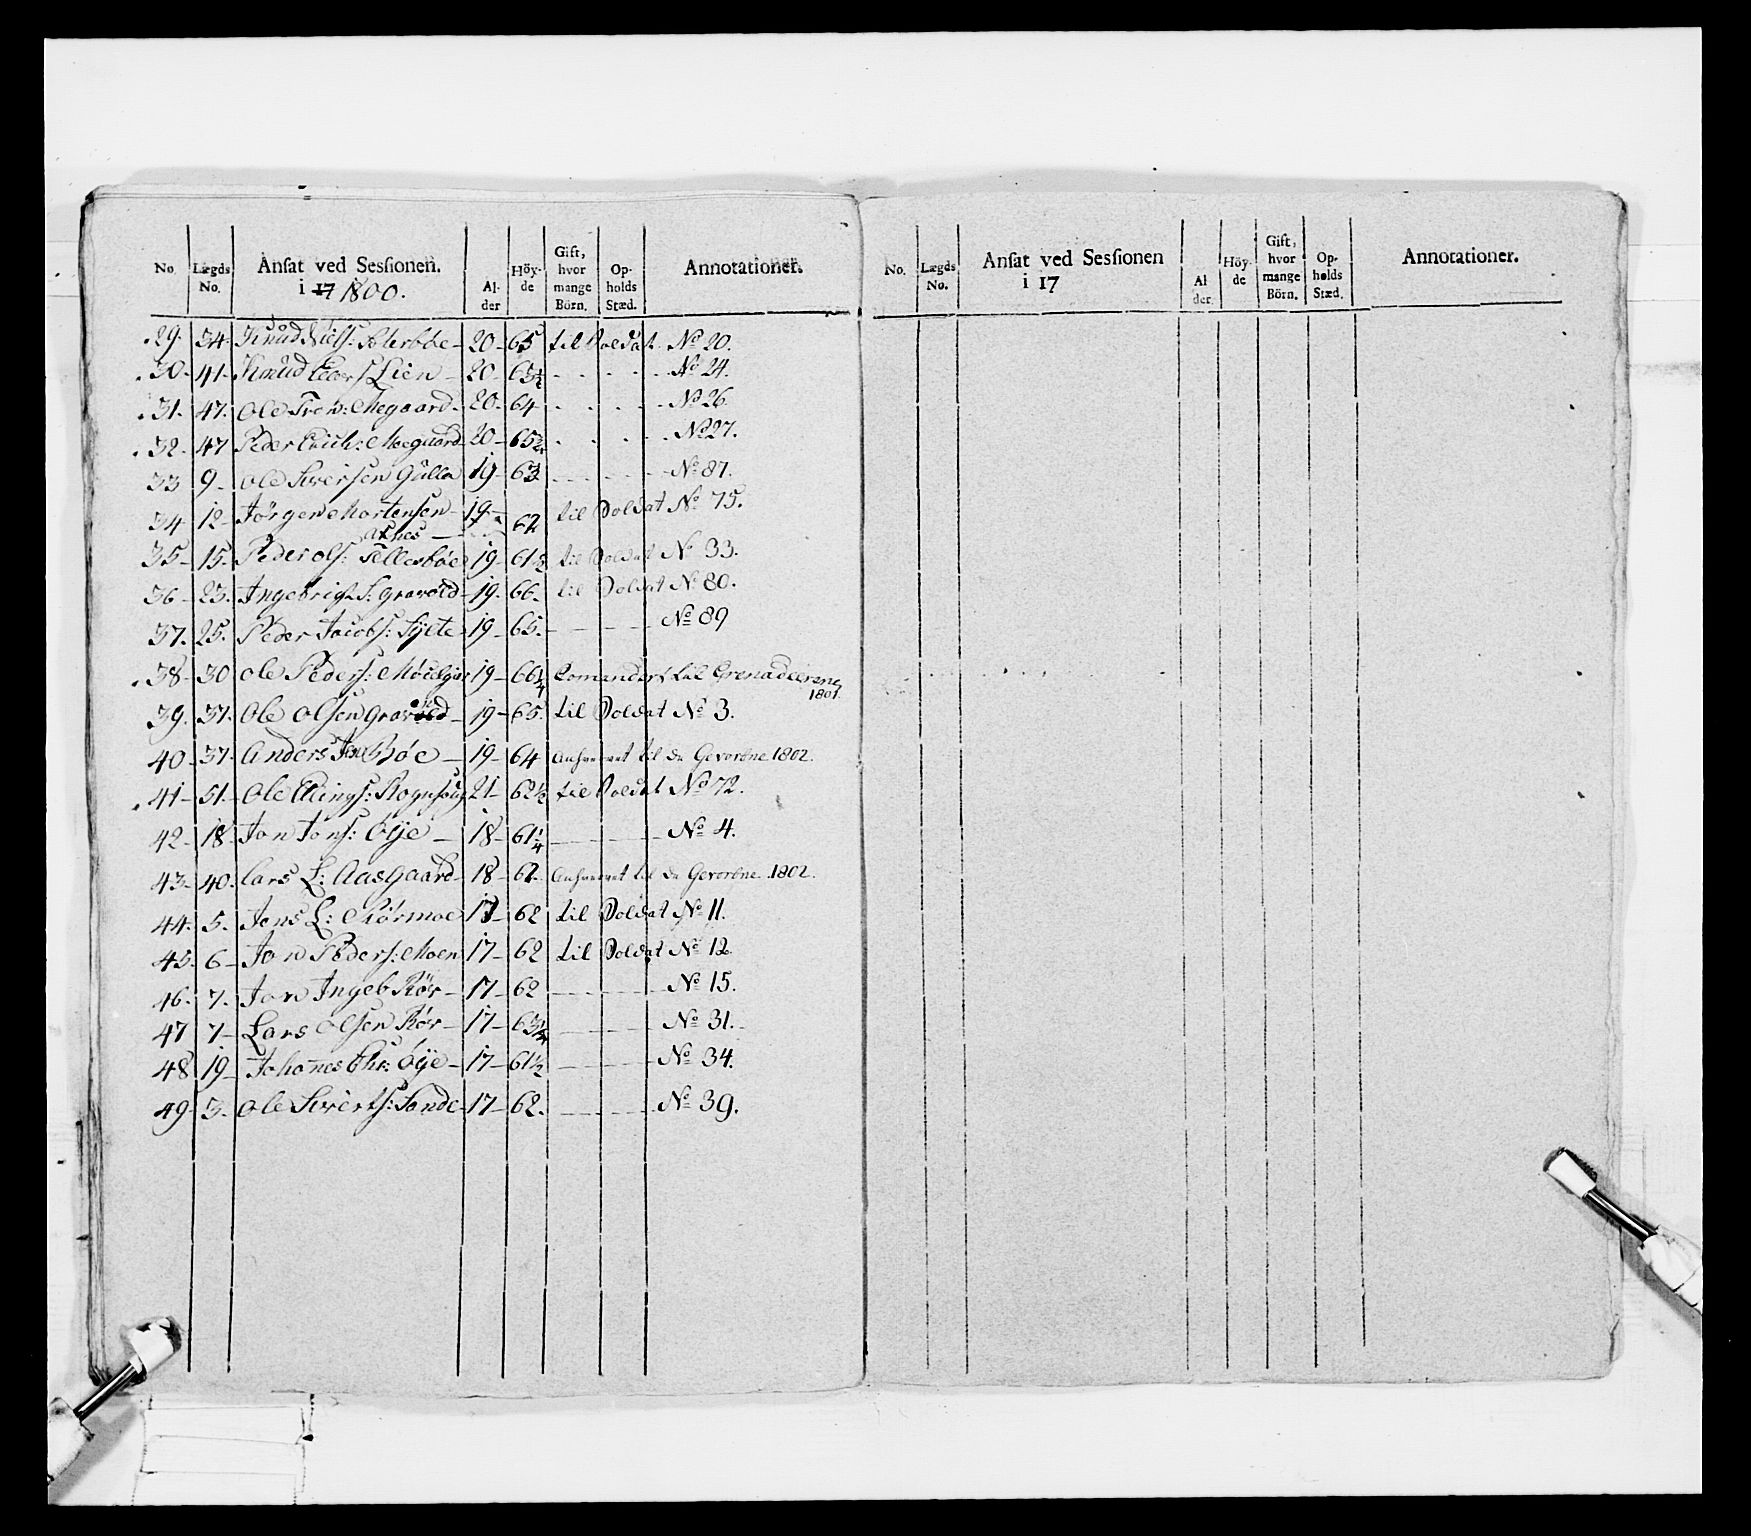 No. Lægds No. Ansat ved Sessionen. i 17 1800. Al-der Höy-de Gift, hvor mange Börn. Op-holds Stæd. Annotationer.
29. 34. Knud Niels: 20 65 til Soldat No 20.
30. 41 Knud Lien 20 63½ No 24.
31. 47. Ole Megaard 20. 64 No 26
32. 47 Peder Erich: Moegaard 20 65½ No 27.
33 9 Ole Siversen Gulla 19 63 No 87.
34 12 Jörgen Mortensen 19 62 til Soldat No 75.
Axnes
35 15. Peder Ols: Tellesböe 19 61½ til Soldat No 33.
36 23. Ingebrigt S: Gravold 19. 66 til Soldat No 80.
37. 25. Peder Jacobs: Sylte 19 65. No 89
38 30 Ole Peders: 19 66¼ Comandert til Grenadeerene
1801.
39. 37. Ole Olsen 19 65. til Soldat No 3.
40 37. Anders Bøe 19 64 til de Gevorbne 1802.
41 51. Ole Ellings: 21 62½ til Soldat No 72.
42 18 Jon Jons: Öye 18 61¼ No 4.
43 40. Lars L: Aasgaard 18 62. til de Gevorbne 1802.
44. 5. Jens L: 17 62 til Soldat No 11.
45. 6 Jon Peders: Moen 17 62 til Soldat No 12.
46. 7. Jon Ingeb Rör 17 62 No 15.
47 7 Lars Olsen Rör 17 63¼ No 31.
48 19 Johannes Chr: Öye 17 61½ No 34.
49 3. Ole Siverts: Sande 17 62. No 39.
No. Lægds No. Ansat ved Sessionen i 17 Al der. Höy-de Gift, hvor mange Börn. Op-holds Stæd. Annotationer.